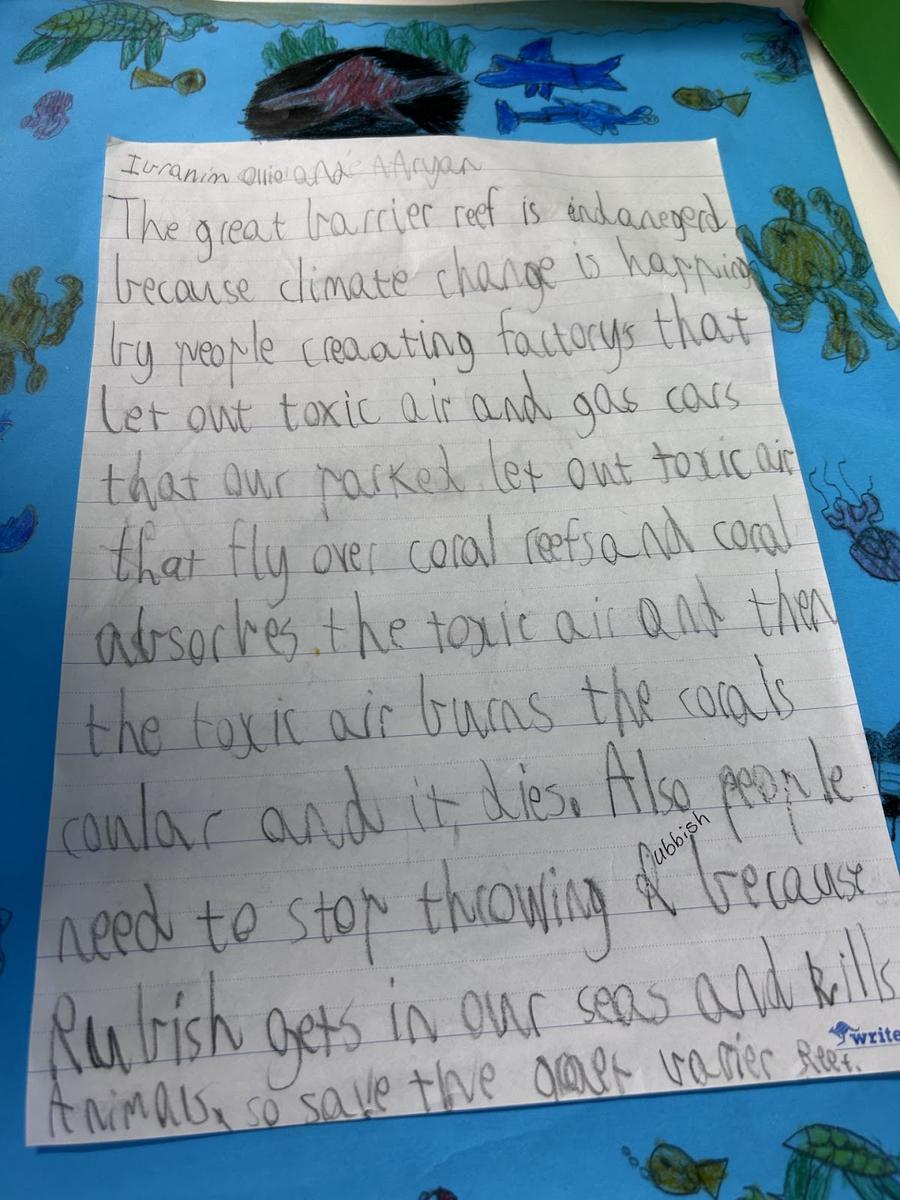 and AAryan
The great barrier reef is indanegerd
because climate change is happning
by people creaating factorys that
let out toxic air and gas cars
that our parked let out toxic air
that fly over coral reefs and coral
absorbes the toxic air and then
the toxic air burns the corals
coular and it dies. Also people
need to stop throwing Rubbish because
Rubish gets in our seas and kills
write
Animals, so save the great barier Reef.